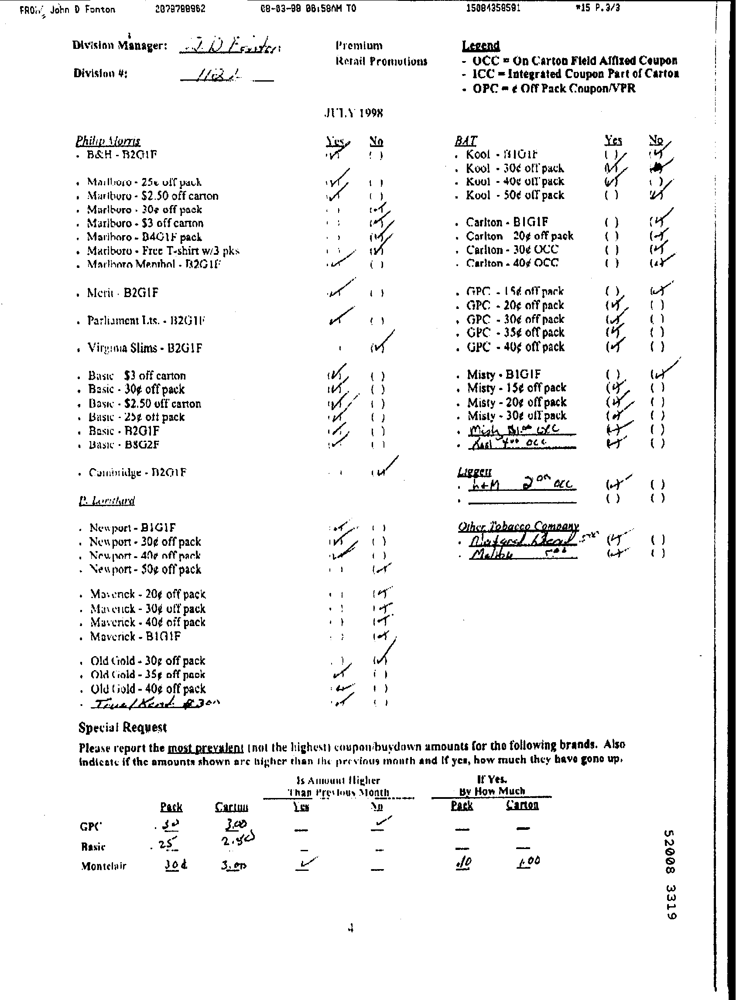 FROM: John D Fenton 2079788962 08-03-98 06:58AM TO 15084358591 #15 P.3/3
Division Manager: J D Fenton Premium Legend
Retail Promotions - OCC = On Carton Field Affixed Coupon
Division #: - ICC = Integrated Coupon Part of Carton
- OPC = ¢ Off Pack Coupon/VPR
JULY 1998
Philip Morris Yes No
• B&H - B2G1F (✓) ( )
• Marlboro - 25¢ off pack (✓) ( )
• Marlboro - $2.50 off carton (✓) ( )
• Marlboro - 30¢ off pack ( ) (✓)
• Marlboro - $3 off carton ( ) (✓)
• Marlboro - B4G1F pack ( ) (✓)
• Marlboro - Free T-shirt w/3 pks (✓) ( )
• Marlboro Menthol - B2G1F (✓) ( )
• Merit - B2G1F (✓) ( )
• Parliament Lts. - B2G1F (✓) ( )
• Virginia Slims - B2G1F ( ) (✓)
• Basic $3 off carton (✓) ( )
• Basic - 30¢ off pack (✓) ( )
• Basic - $2.50 off carton (✓) ( )
• Basic - 25¢ off pack (✓) ( )
• Basic - B2G1F (✓) ( )
• Basic - B8G2F (✓) ( )
• Cambridge - B2G1F ( ) (✓)
P. Lorillard
• Newport - B1G1F (✓) ( )
• Newport - 30¢ off pack (✓) ( )
• Newport - 40¢ off pack (✓) ( )
• Newport - 50¢ off pack ( ) (✓)
• Maverick - 20¢ off pack ( ) (✓)
• Maverick - 30¢ off pack ( ) (✓)
• Maverick - 40¢ off pack ( ) (✓)
• Maverick - B1G1F ( ) (✓)
• Old Gold - 30¢ off pack ( ) (✓)
• Old Gold - 35¢ off pack (✓) ( )
• Old Gold - 40¢ off pack (✓) ( )
• True/Kent (✓) ( )
BAT Yes No
• Kool - B1G1F ( ) (✓)
• Kool - 30¢ off pack (✓)
• Kool - 40¢ off pack (✓) ( )
• Kool - 50¢ off pack ( ) (✓)
• Carlton - B1G1F ( ) (✓)
• Carlton 20¢ off pack ( ) (✓)
• Carlton - 30¢ OCC ( ) (✓)
• Carlton - 40¢ OCC ( ) (✓)
• GPC - 15¢ off pack ( ) (✓)
• GPC - 20¢ off pack (✓) ( )
• GPC - 30¢ off pack (✓) ( )
• GPC - 35¢ off pack (✓) ( )
• GPC - 40¢ off pack (✓) ( )
• Misty - B1G1F ( ) (✓)
• Misty - 15¢ off pack (✓) ( )
• Misty - 20¢ off pack (✓) ( )
• Misty - 30¢ off pack (✓) ( )
• Misty OCC (✓) ( )
• Kool 4.00 OCC (✓) ( )
Liggett
• L+M 2 00 OCC (✓) ( )
• ( ) ( )
Other Tobacco Company
• Natural Blend (✓) ( )
• Malibu (✓) ( )
Special Request
Please report the most prevalent (not the highest) coupon/buydown amounts for the following brands. Also
indicate if the amounts shown are higher than the previous month and if yes, how much they have gone up.
Is Amount Higher If Yes,
Than Previous Month By How Much
Pack Carton Yes No Pack Carton
GPC .30 3.00 — ✓ — —
Basic .25 2.50 — — — —
Montclair 30¢ 3.00 ✓ — .10 1.00
52008 3319
4